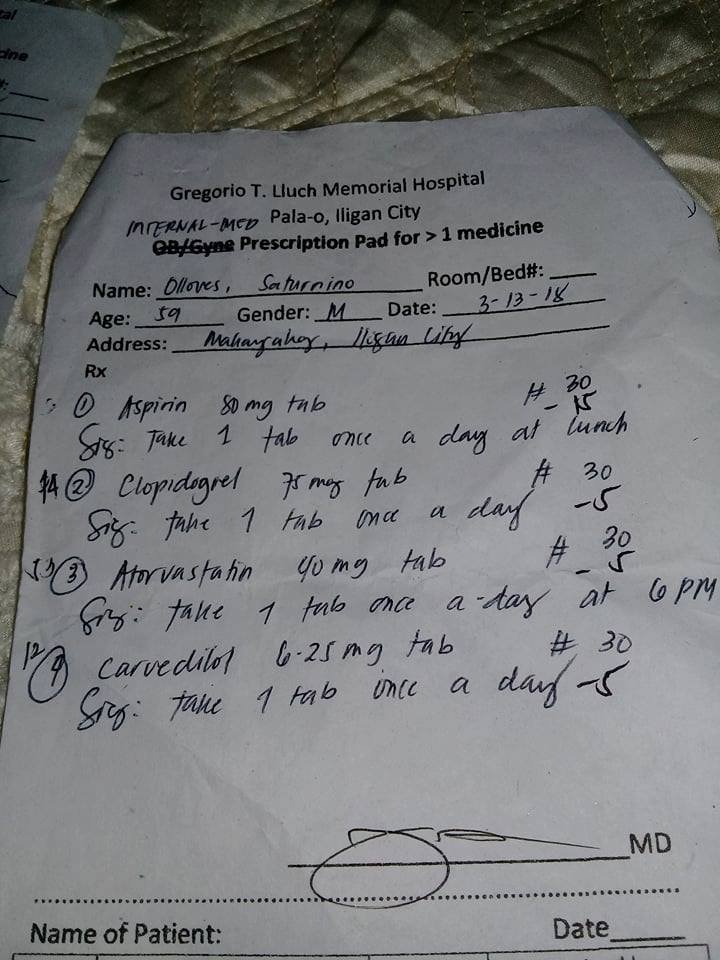 tal
cine
Gregorio T. Lluch Memorial Hospital
INTERNAL-MED Pala-o, Iligan City
OB/Gyne Prescription Pad for > 1 medicine
Name: Olloves, Saturnino Room/Bed#:
Age: 59 Gender: M Date: 3-13-18
Address: Iligan City
Rx
① Aspirin 80 mg tab # 30
- 15
Sig: Take 1 tab once a day at lunch
14 ② Clopidogrel 75 mg tab # 30
Sig: take 1 tab once a day -5
③ Atorvastatin 40 mg tab # 30
- 5
Sig: take 1 tab once a day at 6 PM
12 ④ Carvedilol 6.25 mg tab # 30
Sig: take 1 tab once a day -5
MD
Name of Patient: Date